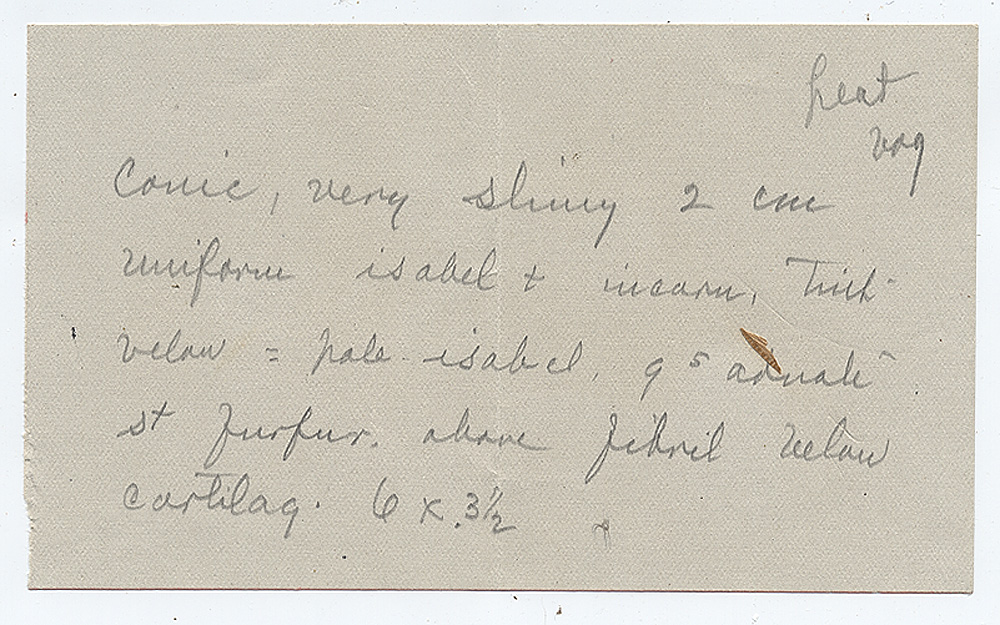 peat
bog
Conic, very slimy 2 cm
uniform isabel + incarn. Tinct
below = pale isabel, gs adnate
st furfur. above fibril below
cartilag. 6 x .3½